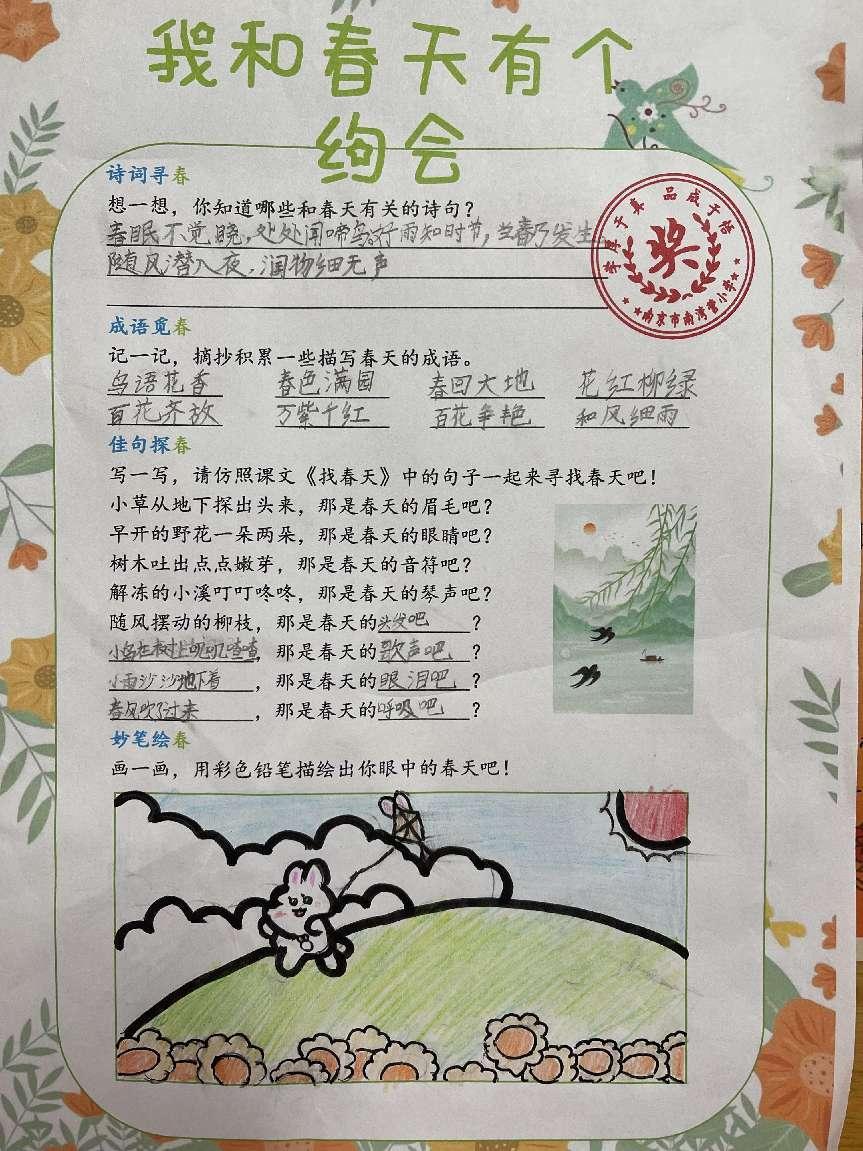 我和春天有个
绚会
诗词寻春
想一想，你知道哪些和春天有关的诗句？
春眠不觉晓，处处闻啼鸟。好雨知时节，当春乃发生
随风潜入夜，润物细无声
成语觅春
记一记，摘抄积累一些描写春天的成语。
鸟语花香 春色满园 春回大地 花红柳绿
百花齐放 万紫千红 百花争艳 和风细雨
佳句探春
写一写，请仿照课文《找春天》中的句子一起来寻找春天吧！
小草从地下探出头来，那是春天的眉毛吧？
早开的野花一朵两朵，那是春天的眼睛吧？
树木吐出点点嫩芽，那是春天的音符吧？
解冻的小溪叮叮咚咚，那是春天的琴声吧？
随风摆动的柳枝，那是春天的头发吧？
小鸟在树上叽叽喳喳，那是春天的歌声吧？
小雨沙沙地下着，那是春天的眼泪吧？
春风吹了过来，那是春天的呼吸吧？
妙笔绘春
画一画，用彩色铅笔描绘出你眼中的春天吧！
奖
南京市南湾营小学